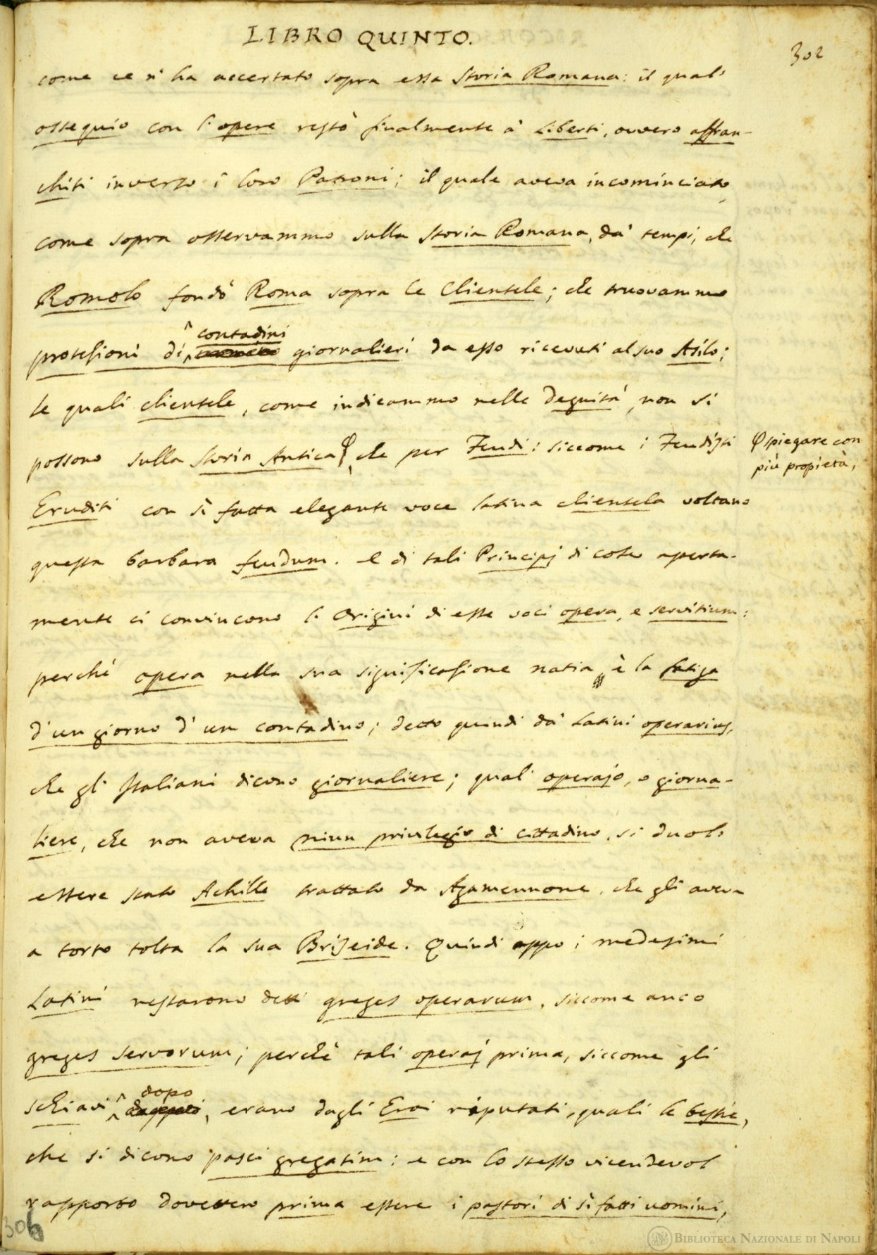 LIBRO QUINTO.
302
come ce n' ha accertato sopra essa Storia Romana: il qual'
ossequio con l'opere restò finalmente a' Liberti, ovvero affran-
chiti inverso i loro Patroni; il quale aveva incominciato,
come sopra osservammo sulla Storia Romana, da' tempi, che
Romolo fondò Roma sopra le Clientele; che truovammo
protezioni di contadini giornalieri da esso ricevuti al suo Asilo;
le quali clientele, come indicammo nelle Degnità, non si
possono sulla Storia Antica φ, che per Feudi: siccome i Feudisti
φ piegare con
più propietà,
Eruditi con sì fatta elegante voce latina clientela voltano
questa barbara feudum. e di tali Principj di cose aperta-
mente ci convincono le Origini di esse voci opera, e servitium:
perchè opera nella sua significazione natia, è la fatiga
d'un giorno d'un contadino; detto quindi da' Latini operarius,
che gl'Italiani dicono giornaliere; qual' operajo, o giorna-
liere, che non aveva niun privilegio di cittadino, si duol'
essere stato Achille trattato da Agamennone, che gli aveva
a torto tolta la sua Briseide. Quindi appo i medesimi
Latini restarono detti greges operarum, siccome anco
greges servorum; perchè tali operaj prima, siccome gli
schiavi dopo, erano dagli Eroi riputati, quali le bestie,
che si dicono pasci gregatim: e con lo stesso vicendevol
rapporto dovettero prima essere i pastori di sì fatti uomini,
306
BIBLIOTECA NAZIONALE DI NAPOLI